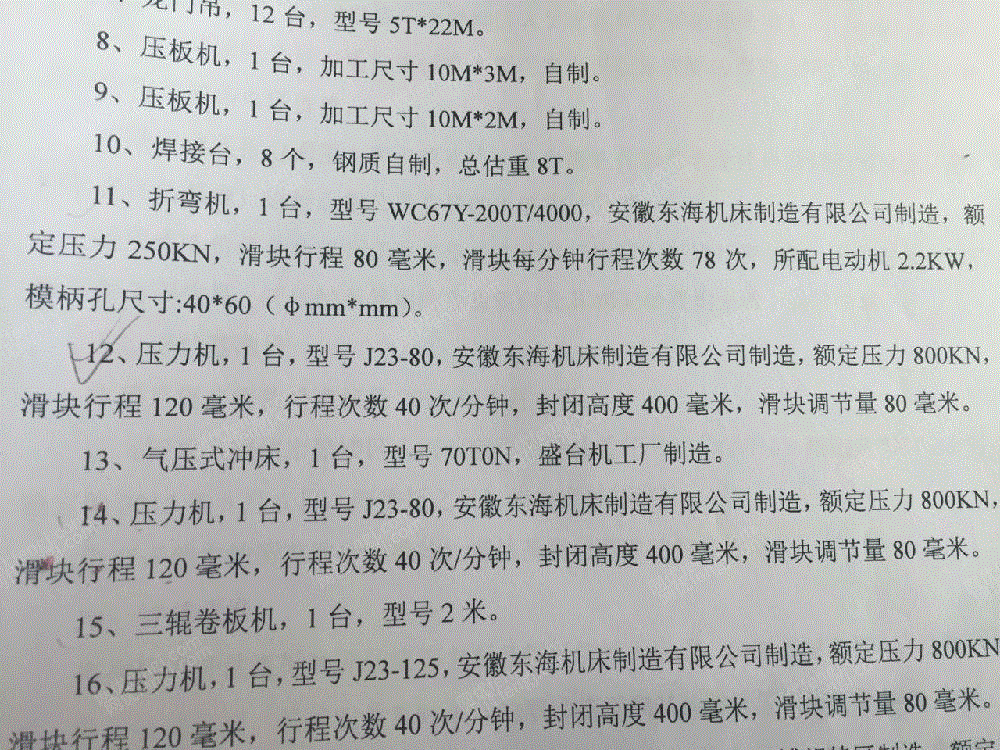 龙门吊，12台，型号5T*22M。
8、压板机，1台，加工尺寸10M*3M，自制。
9、压板机，1台，加工尺寸10M*2M，自制。
10、焊接台，8个，钢质自制，总估重8T。
11、折弯机，1台，型号WC67Y-200T/4000，安徽东海机床制造有限公司制造，额
定压力250KN，滑块行程80毫米，滑块每分钟行程次数78次，所配电动机2.2KW，
模柄孔尺寸:40*60（φmm*mm）。
12、压力机，1台，型号J23-80，安徽东海机床制造有限公司制造，额定压力800KN，
滑块行程120毫米，行程次数40次/分钟，封闭高度400毫米，滑块调节量80毫米。
13、气压式冲床，1台，型号70T0N，盛台机工厂制造。
14、压力机，1台，型号J23-80，安徽东海机床制造有限公司制造，额定压力800KN，
滑块行程120毫米，行程次数40次/分钟，封闭高度400毫米，滑块调节量80毫米。
15、三辊卷板机，1台，型号2米。
16、压力机，1台，型号J23-125，安徽东海机床制造有限公司制造，额定压力800KN
滑块行程120毫米，行程次数40次/分钟，封闭高度400毫米，滑块调节量80毫米。